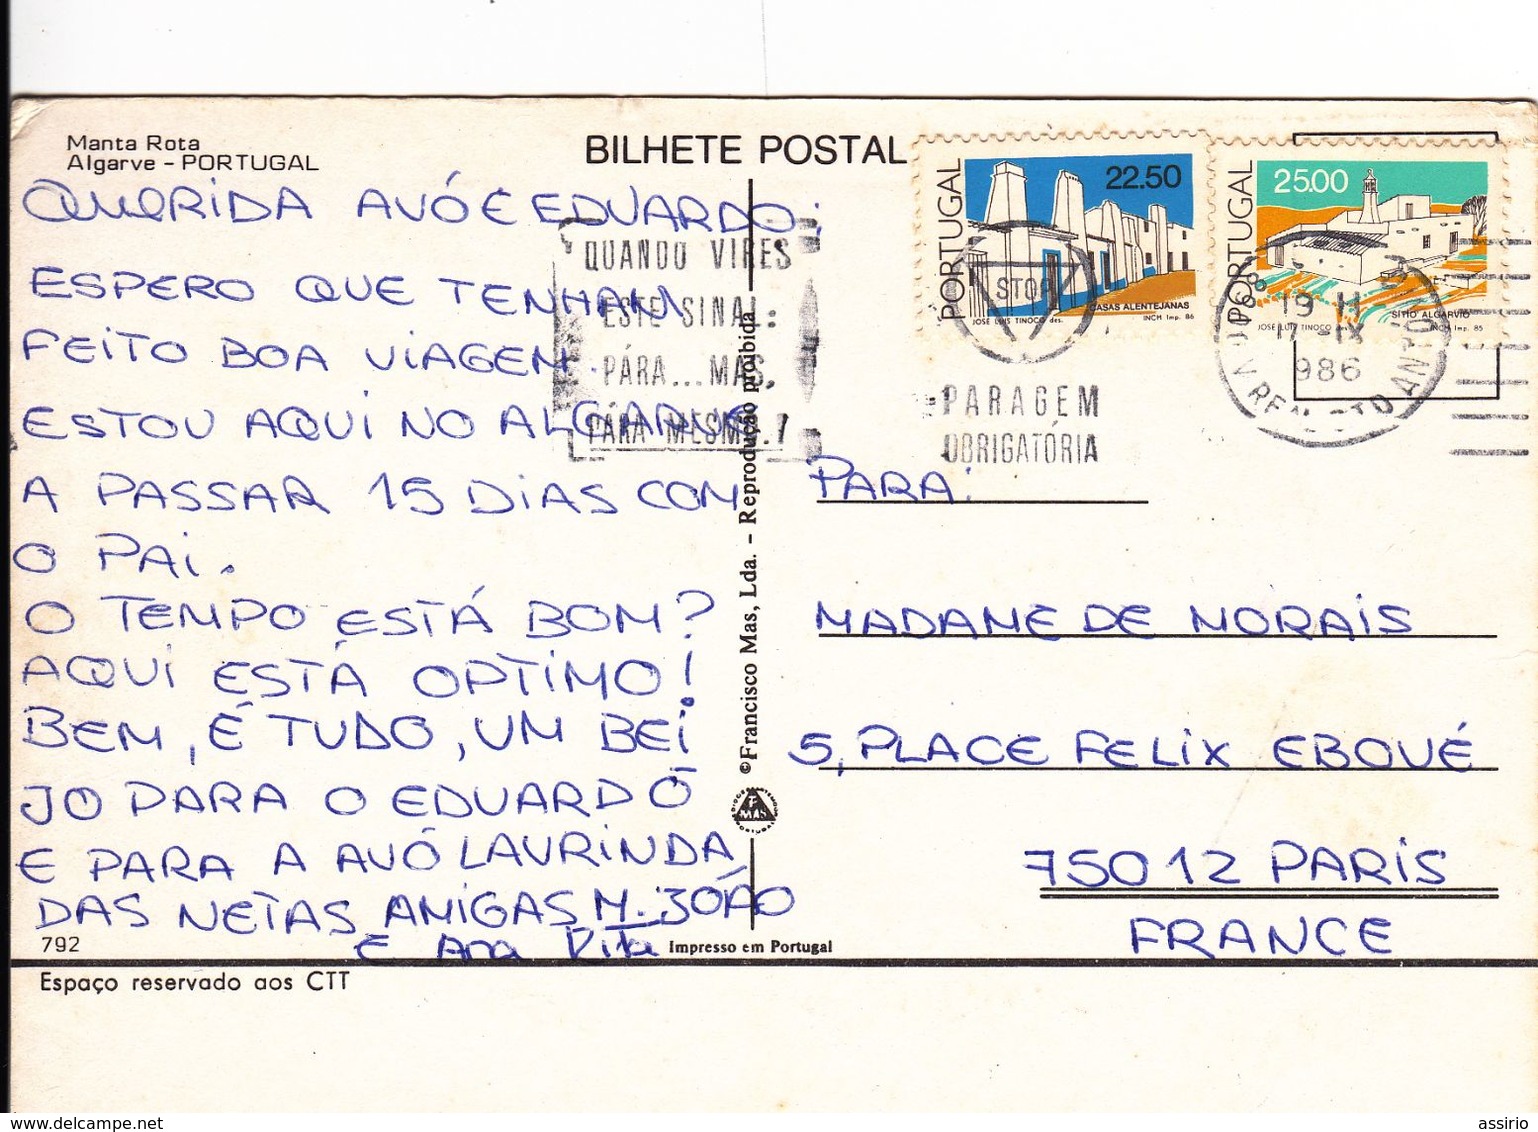 Manta Rota
Algarve - PORTUGAL
BILHETE POSTAL
QUERIDA AVÓ E EDUARDO;
ESPERO QUE TENHAM
FEITO BOA VIAGEM.
ESTOU AQUI NO ALGARVE
A PASSAR 15 DIAS COM
O PAI.
O TEMPO ESTÁ BOM?
AQUI ESTÁ OPTIMO!
BEM, É TUDO, UM BEI
JO PARA O EDUARDO
E PARA A AVÓ LAURINDA
DAS NETAS AMIGAS M. JOÃO
E Ana Rita
792
Espaço reservado aos CTT
QUANDO VIRES
ESTE SINAL:
PÁRA... MAS,
PÁRA MESMO..!
STOP
PARAGEM
OBRIGATÓRIA
©Francisco Mas, Lda. - Reprodução proibida
F
MAS
Impresso em Portugal
PORTUGAL
22.50
CASAS ALENTEJANAS
JOSÉ LUÍS TINOCO des.
INCM Imp. 86
PORTUGAL
25.00
SÍTIO ALGARVIO
JOSÉ LUÍS TINOCO des.
INCM Imp. 85
19 H
17-IX
986
V REAL STO ANTONIO
PARA:
MADAME DE MORAIS
5, PLACE FELIX EBOUÉ
75012 PARIS
FRANCE
delcampe.net
assirio